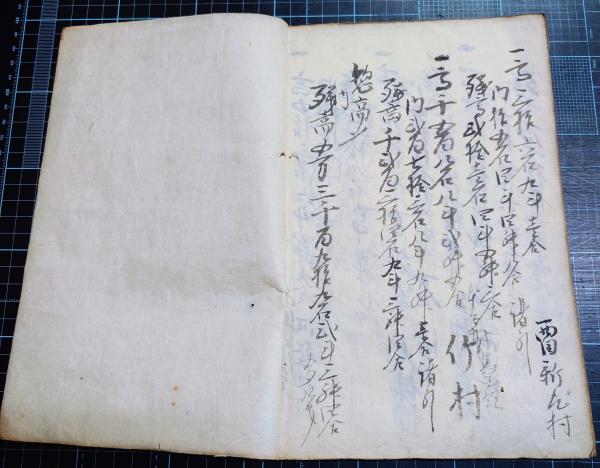 一高三拾六石九斗壱合
内拾五石四斗四升八合 諸引
残高弐拾壱石四斗五升三合
一高千五百八石八斗弐升五合 竹村
内弐百七拾三石八斗九升壱合 諸引
残高千弐百三拾四石九斗三升四合
惣高〆
残高五万三千百九拾九石弐斗三升壱合